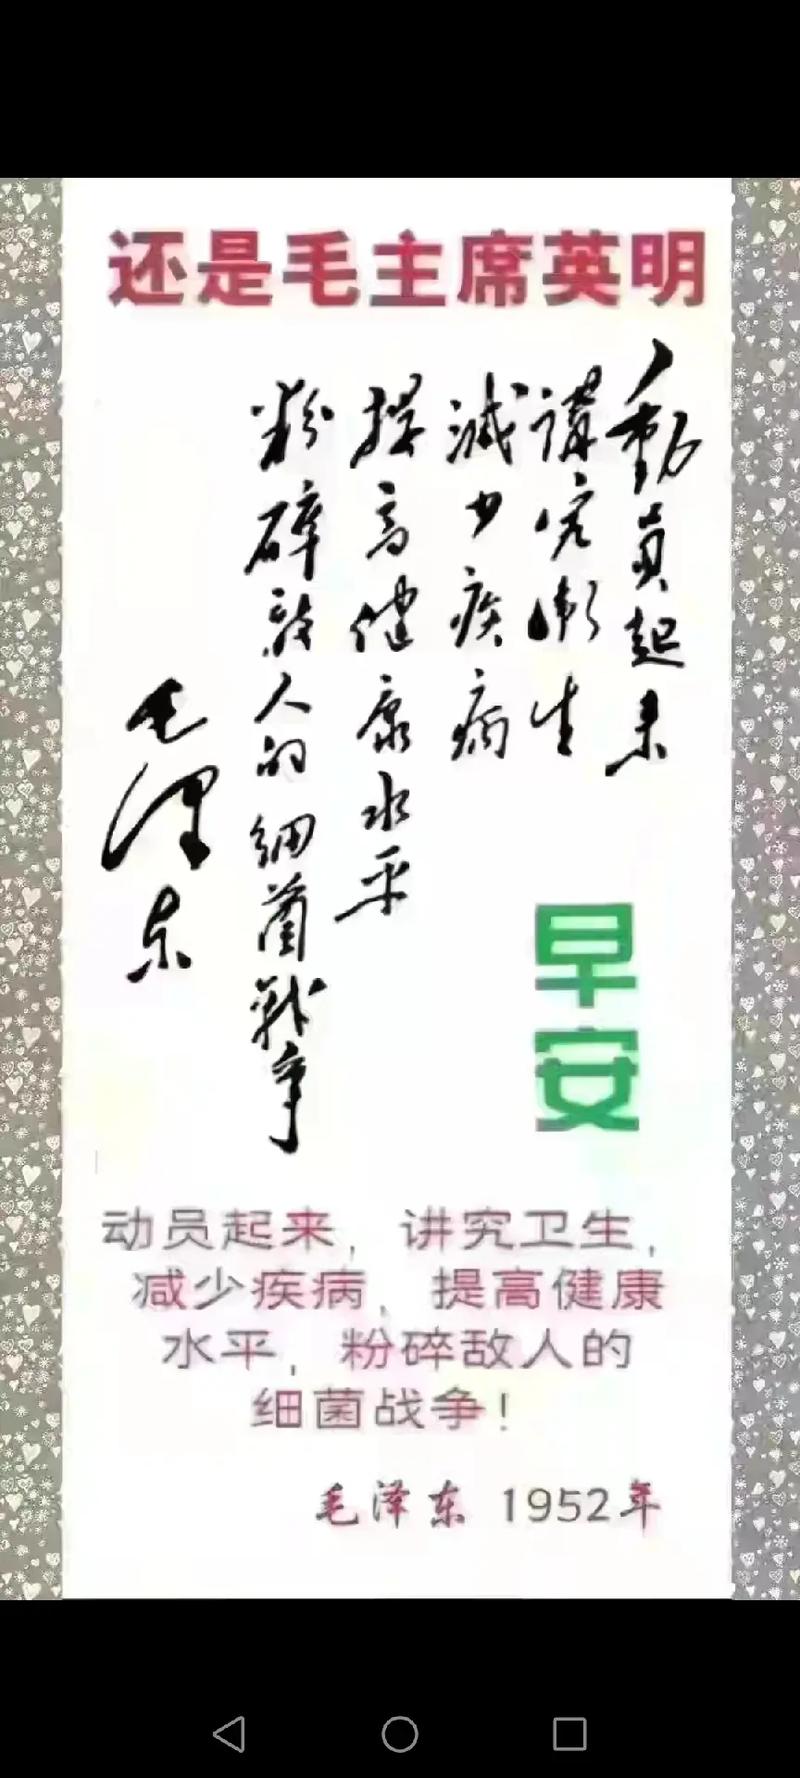 还是毛主席英明
動員起来
講究衛生
減少疾病
提高健康水平
粉碎敌人的细菌戰争
毛泽东
早安
动员起来，讲究卫生，
减少疾病，提高健康
水平，粉碎敌人的
细菌战争！
毛泽东 1952年